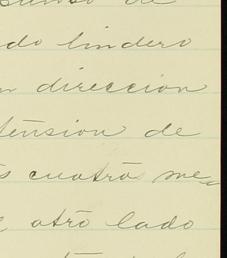 de
do lindero
n direccion
tension de
s cuatro me
otro lado